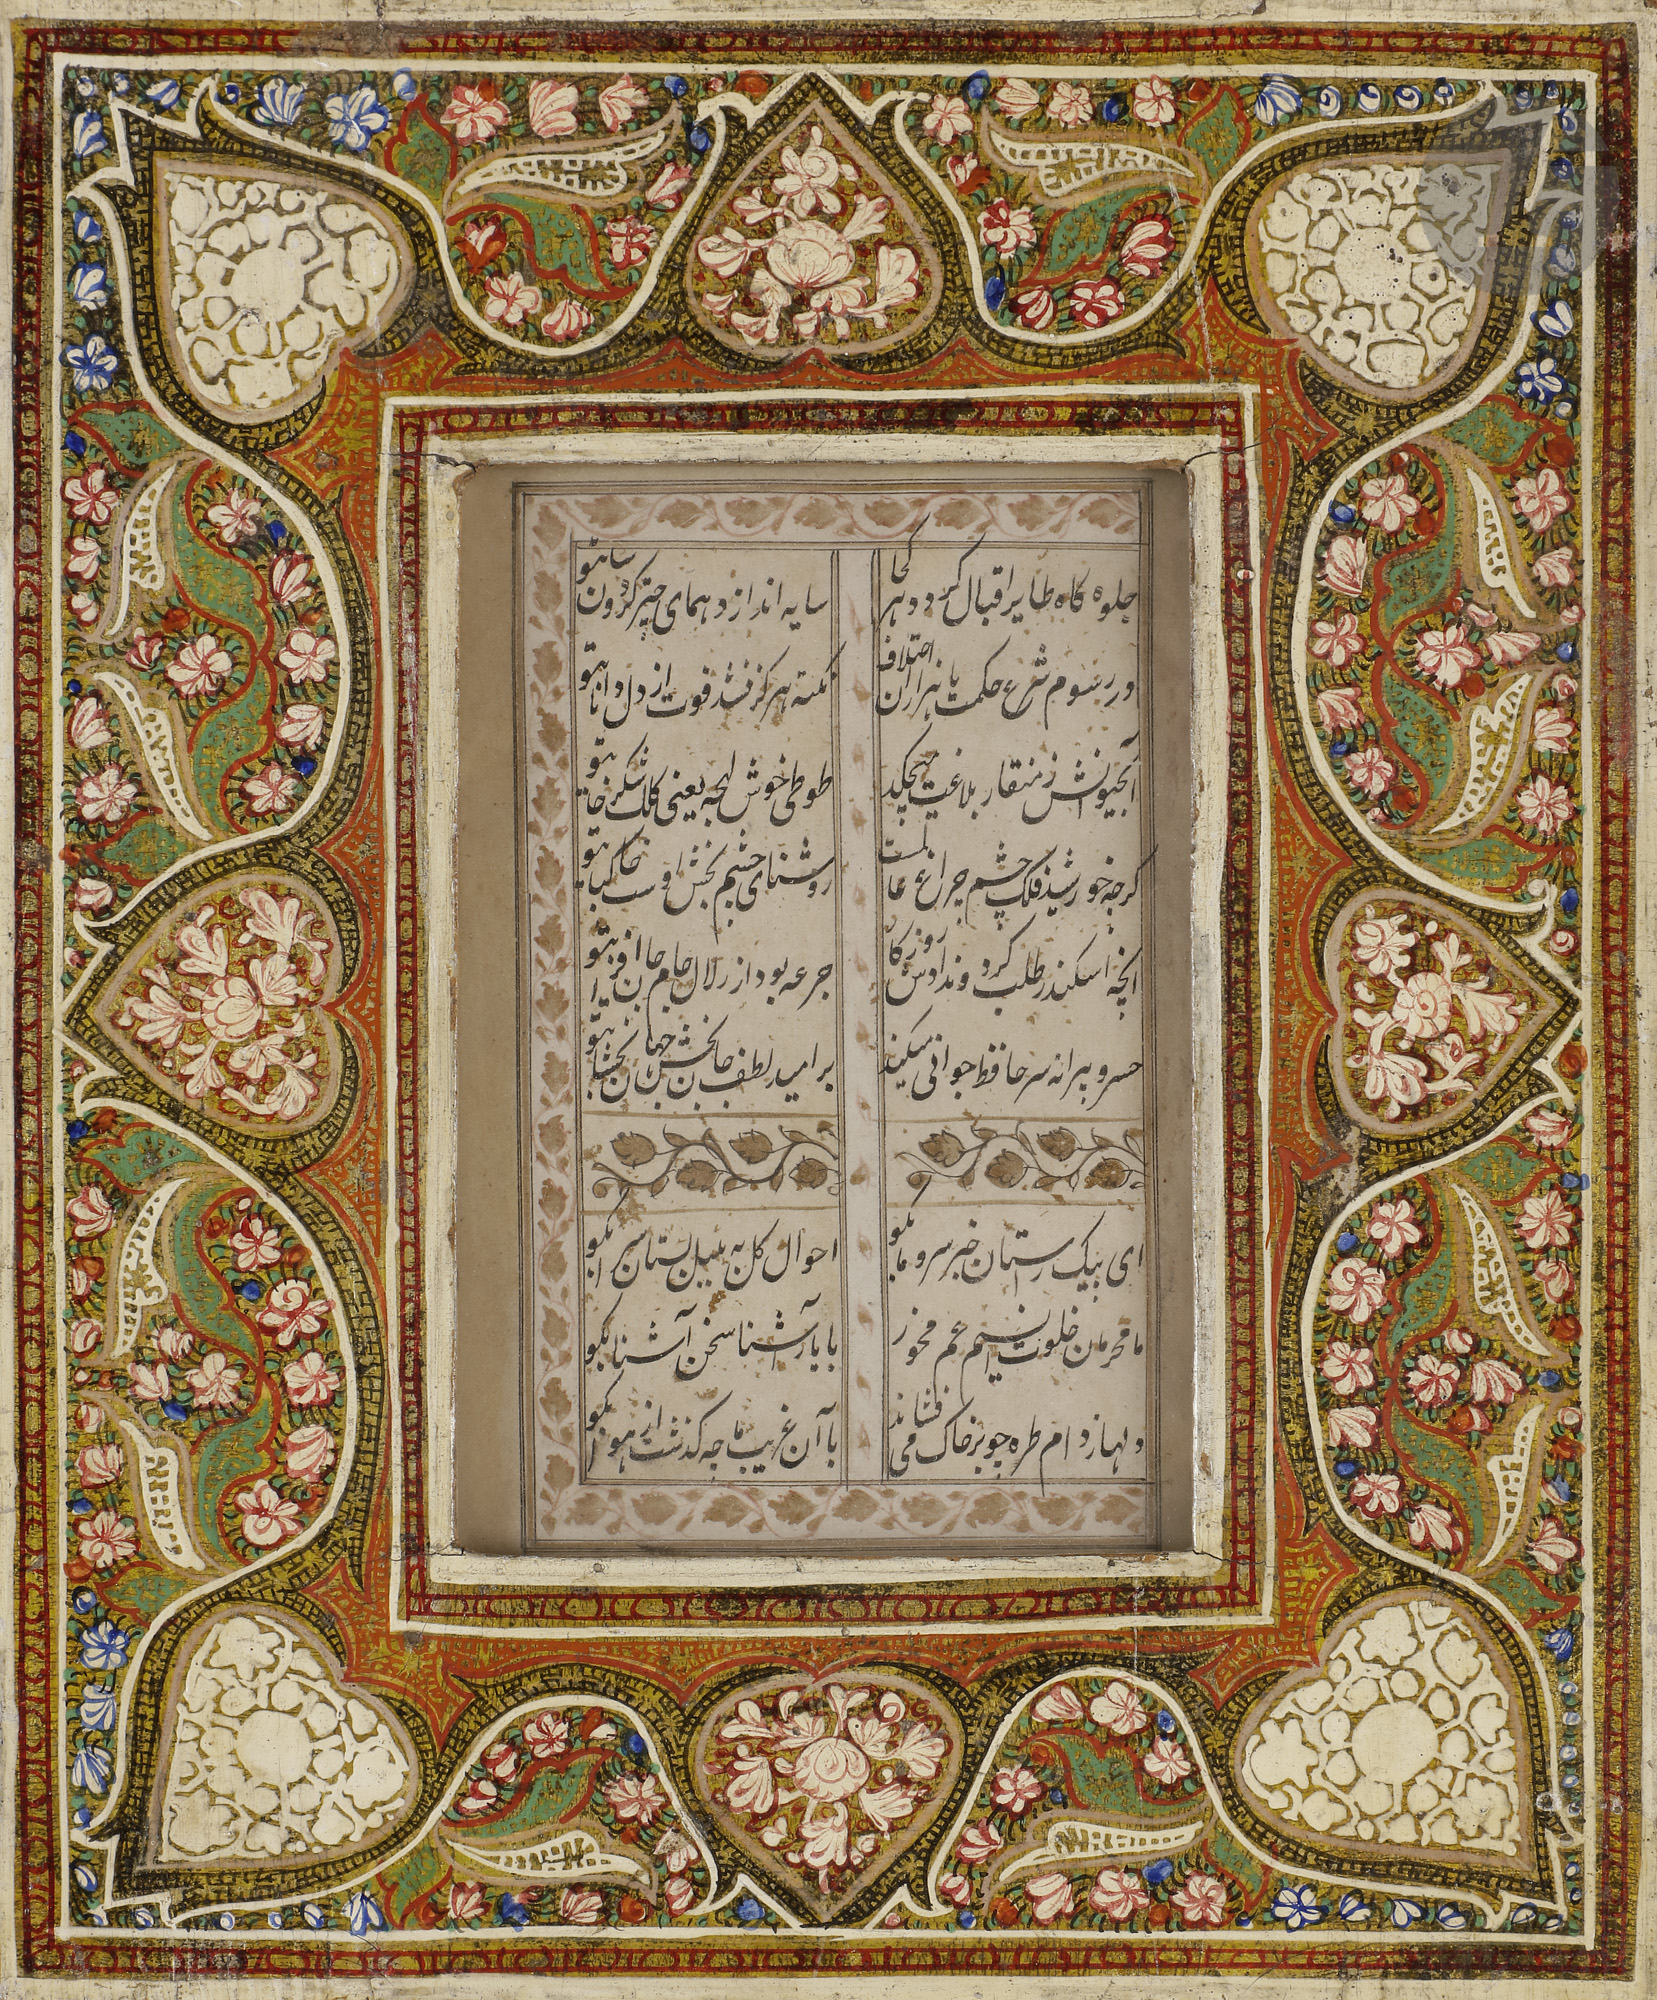 جلوه کاه طایر اقبال کردد هر کجا سایه اندازد همای چتر کردون سا تو
در رسوم شرع حکمت با هزاران اختلاف نکته هرکز نشد فوت از دل دانا تو
آبحیوانش ز منقار بلاغت میچکد طوطی خوش لهجه یعنی کلک شکر خا تو
کرچه خورشید فلک چشم چراغ عالمست روشنای چشم بخش اوست خاک پا تو
انچه اسکندر طلب کرد و ندادش روزکار جرعه بود از زلال جام جان افزا تو
خسرو پیرانه سر حافظ جوانی میکند بر امید لطف جان بخش جهان بخشا تو
ای پیک راستان خبر سرو ما بکو احوال کل به بلبل دستان سرا بکو
ما محرمان خلوت انسیم غم مخور با یار آشنا سخن آشنا بکو
دلها ز دام طره چو بر خاک می فشاند با آن غریب ما چه کذشت از هوا بکو